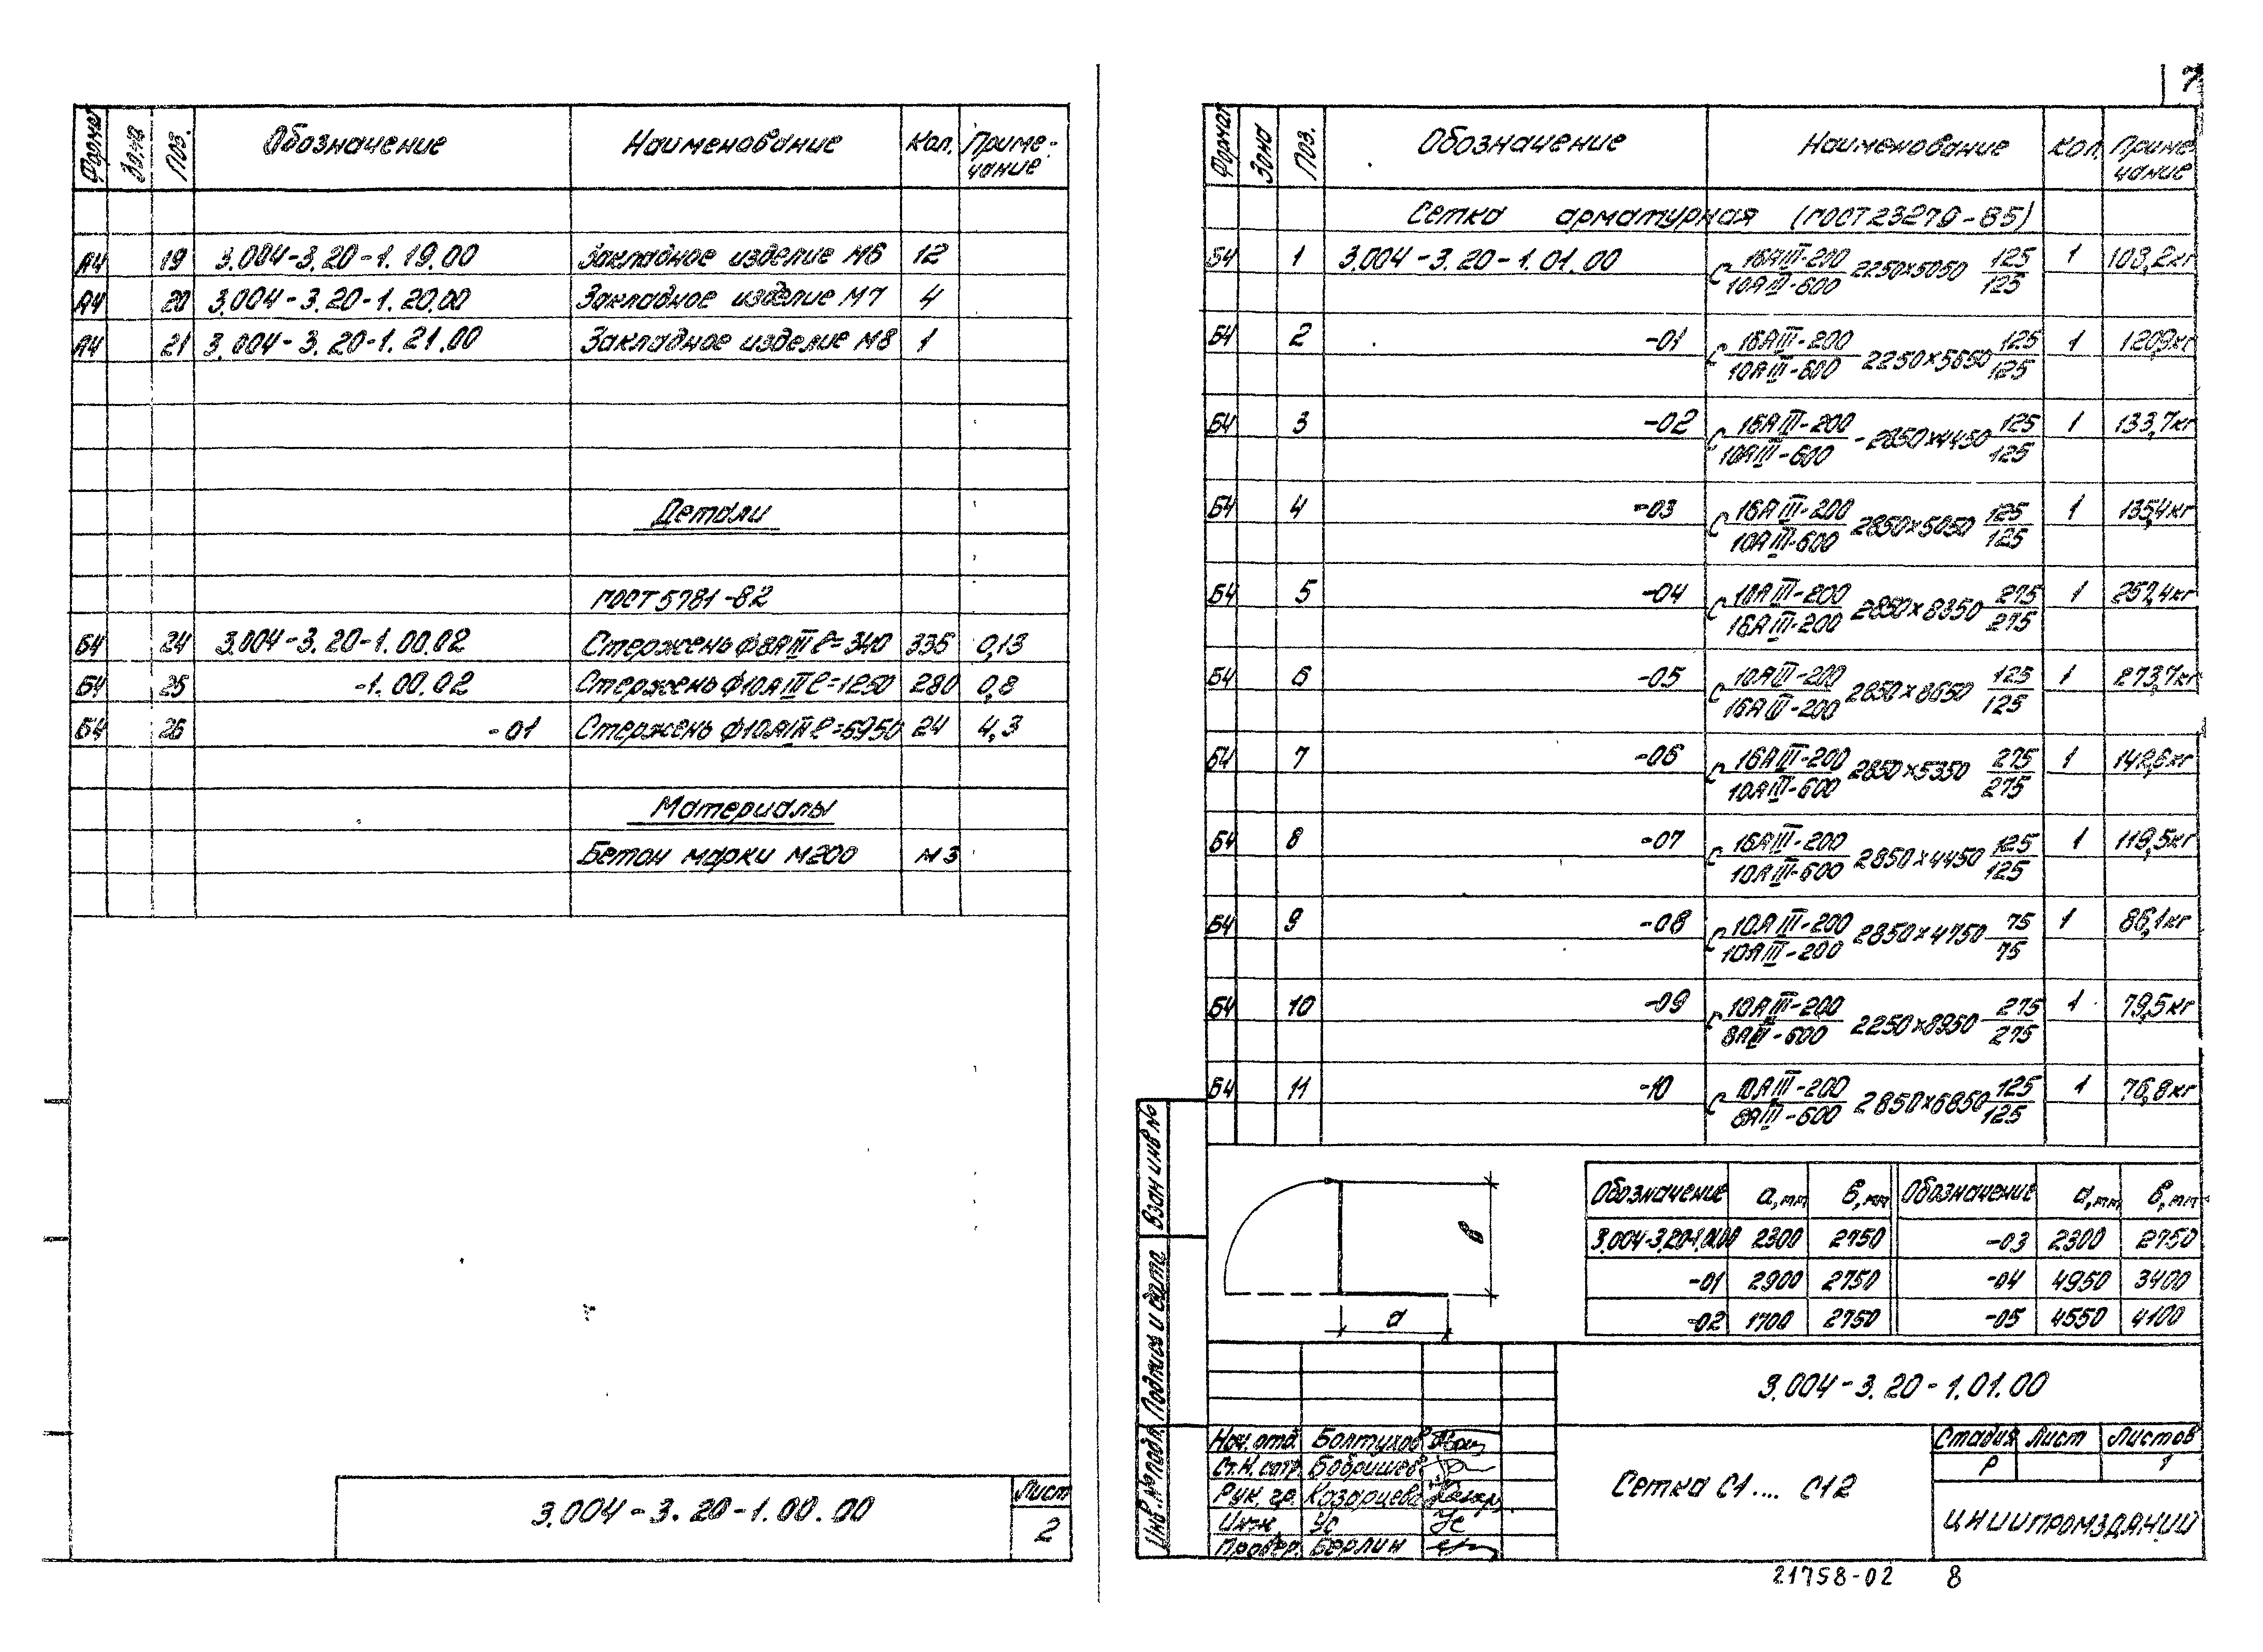 Формат Зона Поз. Обозначение Наименование Кол. Приме-чание
А4 19 3.004-3.20-1.19.00 Закладное изделие М6 12
А4 20 3.004-3.20-1.20.00 Закладное изделие М7 4
А4 21 3.004-3.20-1.21.00 Закладное изделие М8 1
Детали
ГОСТ 5781-82
Б4 24 3.004-3.20-1.00.02 Стержень ф8АIII ℓ=340 335 0,13
Б4 25 -1.00.02 Стержень ф10АIII ℓ=1250 280 0,8
Б4 26 -01 Стержень ф10АIII ℓ=6950 24 4,3
Материалы
Бетон марки М200 м3
3.004-3.20-1.00.00
Лист
2
7
Формат Зона Поз. Обозначение Наименование Кол. Приме чание
Сетка арматурная (ГОСТ 23279-85)
Б4 1 3.004-3.20-1.01.00 С 16АIII-200/10АIII-600 2250×5050 125/125 1 108,2кг
Б4 2 -01 С 16АIII-200/10АIII-600 2250×5650 125/125 1 120,9кг
Б4 3 -02 С 16АIII-200/10АIII-600 - 2850×4450 125/125 1 133,7кг
Б4 4 -03 С 16АIII-200/10АIII-600 2850×5050 125/125 1 135,4кг
Б4 5 -04 С 10АIII-200/16АIII-200 2850×8350 275/275 1 257,4кг
Б4 6 -05 С 10АIII-200/16АIII-200 2850×8650 125/125 1 273,7кг
Б4 7 -06 С 16АIII-200/10АIII-600 2850×5350 275/275 1 142,6кг
Б4 8 -07 С 16АIII-200/10АIII-600 2850×4450 125/125 1 119,5кг
Б4 9 -08 С 10АIII-200/10АIII-200 2850×4750 75/75 1 86,1кг
Б4 10 -09 С 10АIII-200/8АIII-600 2250×8950 275/275 1 79,5кг
Б4 11 -10 С 10АIII-200/8АIII-600 2850×6850 125/125 1 76,8кг
в
а
Обозначение а,мм в,мм Обозначение а,мм в,мм
3.004-3.20-1.01.00 2300 2750 -03 2300 2750
-01 2900 2750 -04 4950 3400
-02 1700 2750 -05 4550 4100
3.004-3.20-1.01.00
Нач. отд. Болтухов
Ст. н. сотр. Бобришев
Рук. гр. Казарцева
Инж. Ус
Провер. Берлин
Сетка С1.... С12
Стадия Лист Листов
Р 1
ЦНИИПРОМЗДАНИЙ
Взам инв №
Подпись и дата
Инв. № подл.
21758-02 8